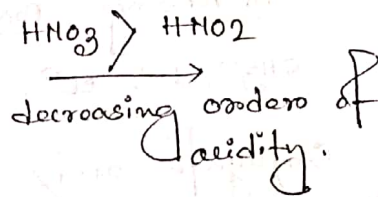 HNO3 > HNO2
decreasing order of
acidity.